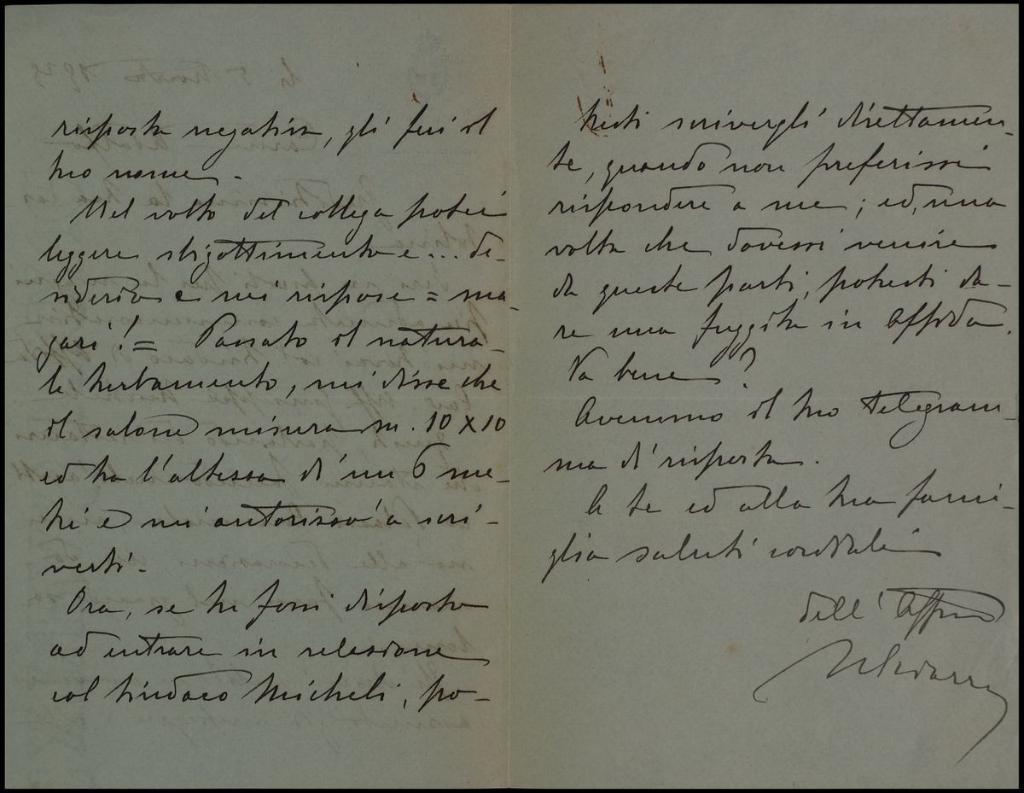 risposta negativa, gli feci il
tuo nome.
Nel volto del collega potei
leggere sbigottimento e... de-
siderio e mi rispose = ma
gari! = Passato il natura-
le turbamento, mi disse che
il salone misura m. 10 x 10
ed ha l'altezza di un 6 me-
tri e mi autorizzò a scri-
verti.
Ora, se tu fossi disposto
ad entrare in relazione
col sindaco Micheli, po-
tresti scrivergli direttamen-
te, quando non preferissi
rispondere a me; ed, una
volta che dovessi venire
da queste parti, potresti da-
re una fuggita in Offida.
Va bene?
Avemmo il tuo telegram-
ma di risposta.
A te ed alla tua fami-
glia saluti cordiali
dell' Affmo